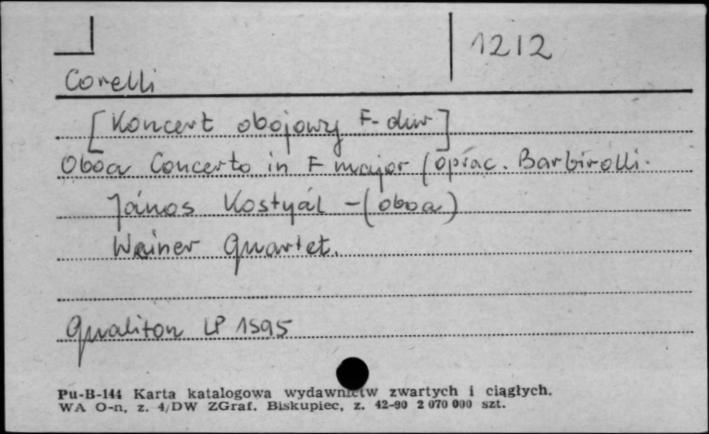 1212
Corelli
[Koncert obojowy F-dur]
Oboa Concerto in F major (oprac. Barbirolli.
János Kostyál - (oboa)
Weiner Quartet.
Qualiton LP 1595
Pu-B-144 Karta katalogowa wydawnictw zwartych i ciągłych.
WA O-n, z. 4/DW ZGraf. Biskupiec, z. 42-90 2 070 000 szt.